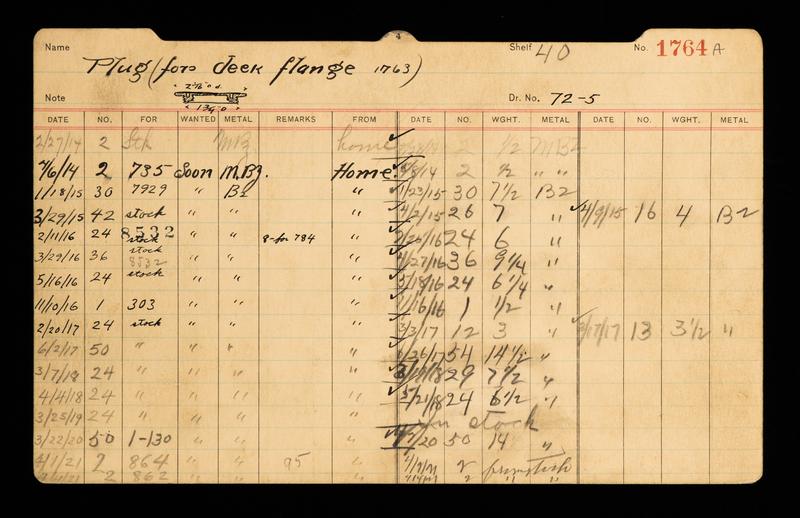 Name Shelf 40 No. 1764 A
Plug (for deck flange 1763)
Note Dr. No. 72-5
DATE NO. FOR WANTED METAL REMARKS FROM DATE NO. WGHT. METAL DATE NO. WGHT. METAL
2/27/14 2 Stk MBz home 2 1/2 MBz
7/6/14 2 735 Soon M.Bz. Home 2 1/2 " "
1/18/15 30 7929 " Bz " 1/23/15 30 7 1/2 Bz
3/29/15 42 stock " " " 4/2/15 26 7 " 4/9/15 16 4 Bz
2/11/16 24 8532 stock " " 8-for 784 " 24 6 "
3/29/16 36 stock 8532 " " " 4/27/16 36 9 1/4 "
5/16/16 24 stock " " " 5/18/16 24 6 1/4 "
11/10/16 1 303 " " " 11/16/16 1 1/2 "
2/20/17 24 stock " " " 3/3/17 12 3 " 3/17/17 13 3 1/2 "
6/2/17 50 " " " " 6/26/17 54 14 1/2 "
3/7/18 24 " " " " 29 7 1/2 "
4/4/18 24 " " " " 5/21/18 24 6 1/2 "
3/25/19 24 " " " " In stock
3/22/20 50 1-130 " " " 50 14 "
4/1/21 2 864 " " 95 " 4/9/21 2 from stock
2 862 " " 2 " "